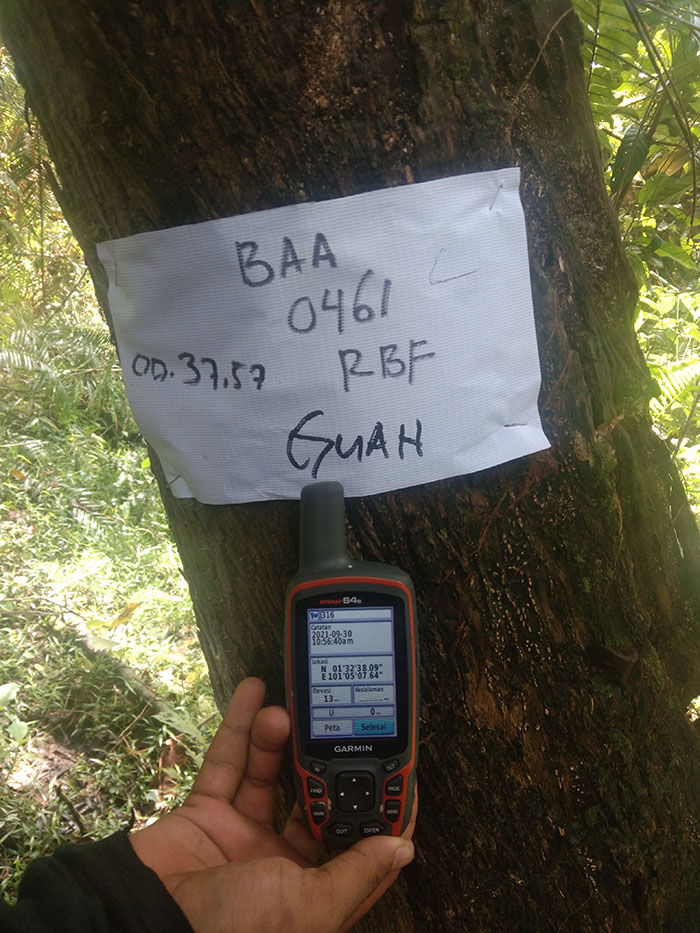 BAA
0461
OD.37,57 RBF
GUAH
GPSMAP 64s
316
Catatan
2021-09-30
10:56:40am
Lokasi
N 01°32'38.09"
E 101°05'07.64"
Elevasi Kedalaman
13m
U 0m
Peta Selesai
GARMIN
IN OUT
FIND PAGE
MARK MENU
QUIT ENTER